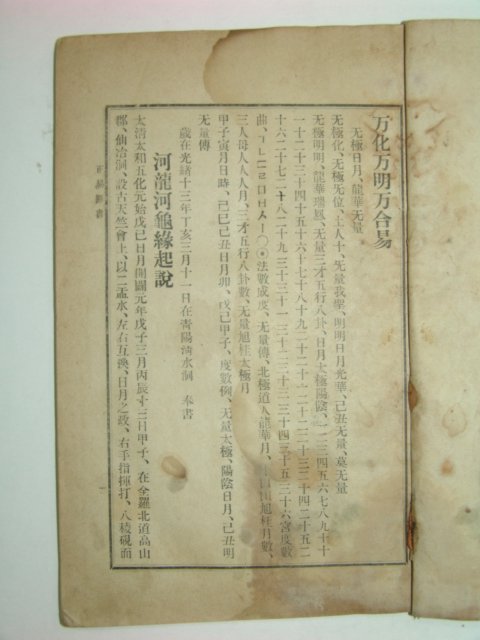 万化万明万合易
无極日月、龍華无量、
无極化、无極无位、主人十、无量我聖、明明日月光華、己丑无量、墓无量
无極明明、龍華瑞鳳、无量三才五行八卦、日月太極陽陰、一二三四五六七八九十十
一十二十三十四十五十六十七十八十九二十二十一二十二二十三二十四二十五二
十六二十七二十八二十九三十三十一三十二三十三三十四三十五三十六宮度數
曲、ㄱㄴㄷㄹㅁㅂㅅㅣ〇、法數成度、无量傳、北極道人龍華月、旭桂月數、
三人母人人人月、三才五行八卦數、无量旭桂太極月
甲子寅月日時、己巳己丑日月卯、戊己甲子、度數例、无量太極、陽陰日月、己丑明
无量傳
歲在光緖十三年丁亥三月十一日在靑陽淸水洞 奉書
河龍河龜緣起說
太淸太和五化元始戊己日月開闢元年戊子三月丙辰十三日甲子、在全羅北道高山
郡、仙冶洞、設古天竺會上、以二盂水、左右互換、日月之政、右手指揮打、八稜硯面